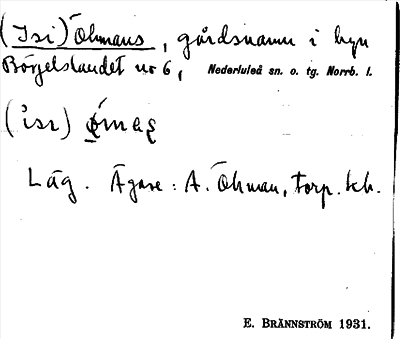 (Isi) Öhmans, gårdsnamn i byn
Börjelslandet nr 6, Nederluleå sn. o. tg. Norrb. l.
Läg. Ägare: A. Öhman, torp. kh.
E. BRÄNNSTRÖM 1931.